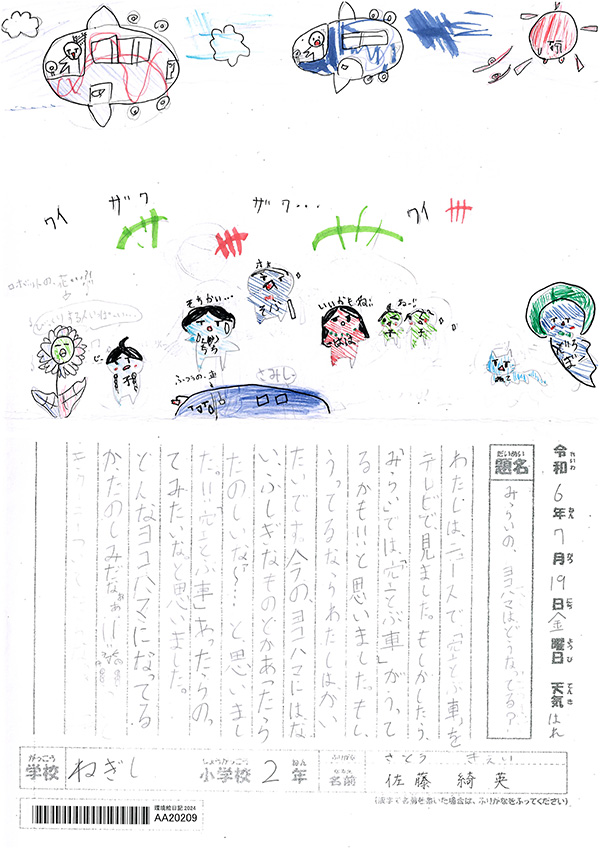 ワイ
ザワ
ザワ・・・
ワイ
ロボットの花・・・?!
そうかい・・・
さよ
そふ
いいかもね!!
ね〜
ちち
そぼ
ふつうの車
さみし
令和6年7月19日金曜日 天気 はれ
れいわ
ねん
がつ
にち
ようび
てんき
だいめい
題名
みらいの、ヨコハマはどうなってる?
わたしは、ニュースで「空とぶ車」を
テレビで見ました。もしかしたら、
みらいでは、「空とぶ車」がうって
るかも!!と思いました。もし、
うってるなら、わたしはかい
たいです。今の、ヨコハマにはな
い、ふしぎなものとかあったら
たのしいな〜・・・と、思いまし
た。!!「空とぶ車」あったらの、
てみたいな。と思いました。
どんなヨコハマになってる
か、たのしみだなぁぁ
がっこう
学校
ねぎし
しょうがっこう
小学校
2
ねん
年
ふりがな
さとう きえい
なまえ
名前
佐藤 綺英
環境絵日記 2024
AA20209